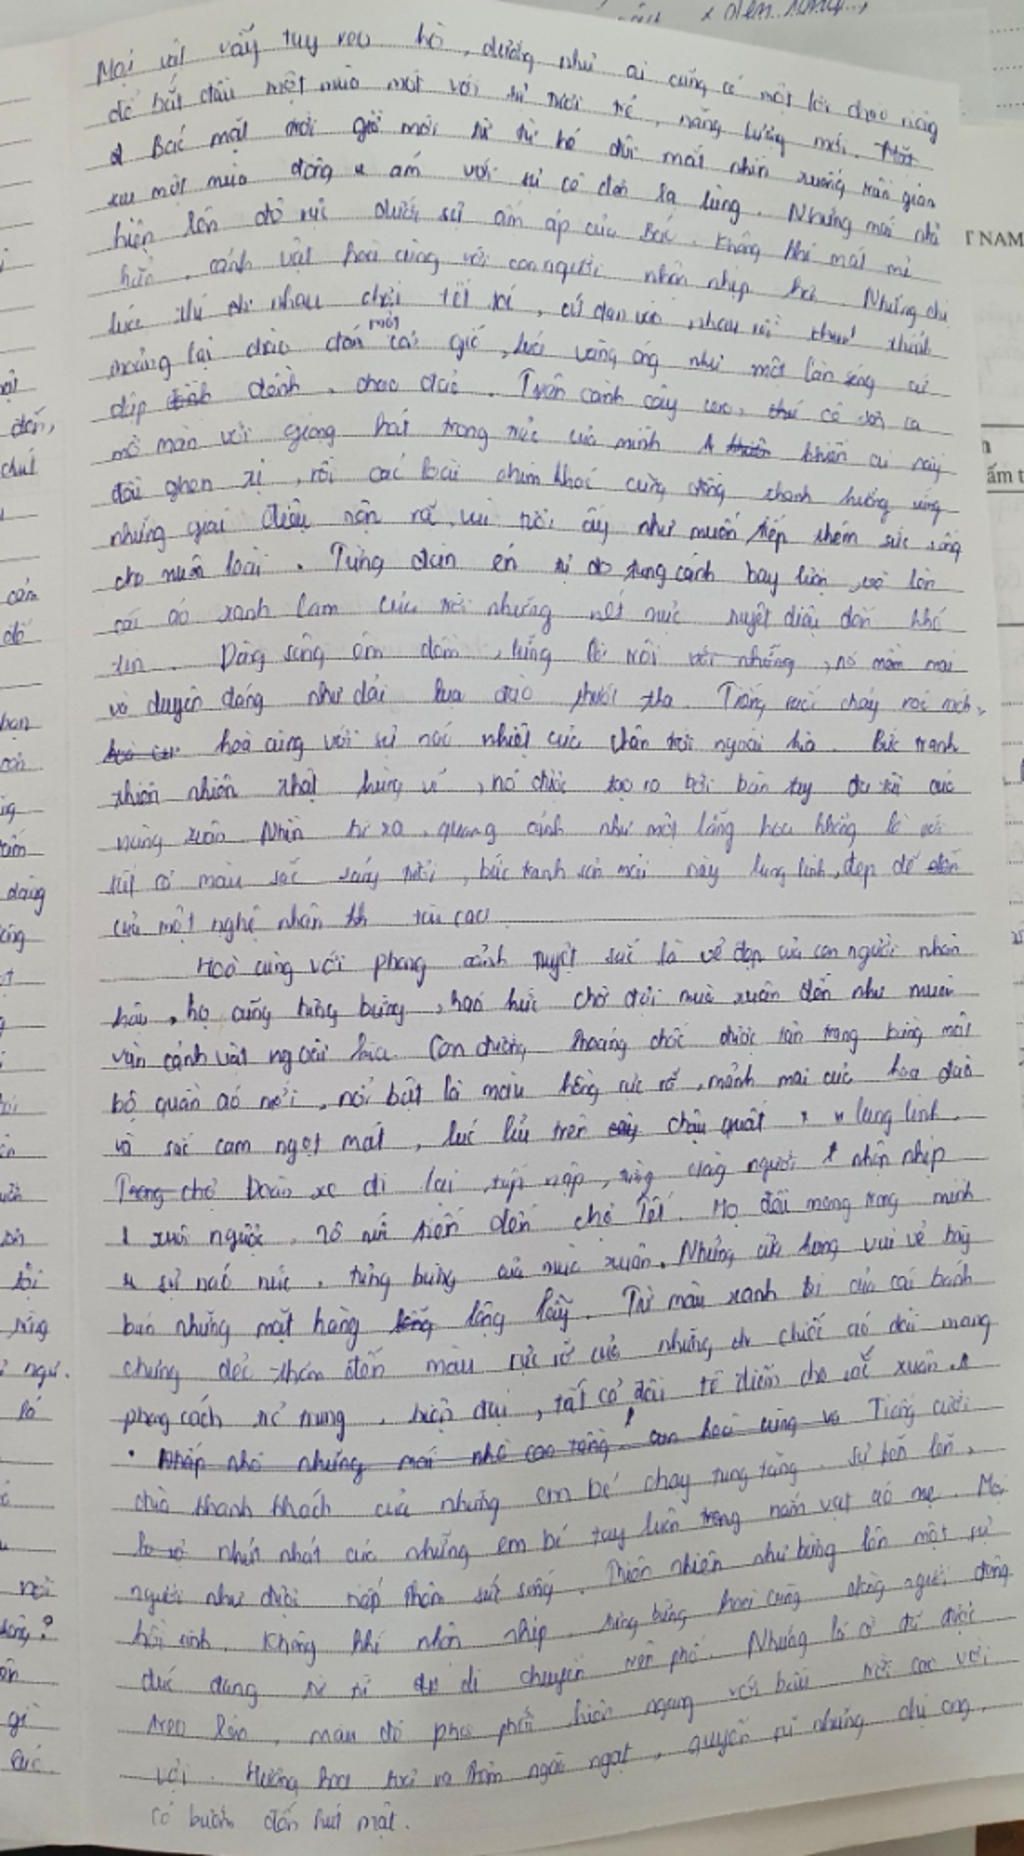 Mọi vật vẫy tay reo hò, dường như ai cũng có một lời chào riêng
để bắt đầu một mùa mới với sự tươi trẻ, năng lượng mới.
Bác mặt trời giờ mới từ từ hé đôi mắt nhìn xuống trần gian
sau một mùa đông ấm với sự cô đơn lạ lùng. Những mái nhà
hiện lên đỏ rực dưới sự ấm áp của Bác. Không khí mát mẻ
hẳn, cảnh vật hoà cùng với con người nhộn nhịp hơn. Những chị
lúa thì nhau chơi tới, cứ đan vào nhau rồi
thoảng lại chào đón mới cơn gió, lúa vàng óng như một làn sóng cứ
dập dềnh, chao đảo. Trên cành cây cao, cô sơn ca
mê mẩn với giọng hát trong trẻo của mình khiến ai nấy
đều ghen tị, rồi các loài chim khác cũng đồng thanh hưởng ứng
những giai điệu rộn rã, vui tươi ấy như muốn tiếp thêm sức sống
cho muôn loài. Từng đàn én tự do tung cánh bay liện, vẽ lên
cái áo xanh lam của trời những nét mực tuyệt diệu đến khó
tin. Dòng sông êm đềm, lững lờ trôi với những, nó mềm mại
và duyên dáng như dải lụa đào thướt tha. Tiếng suối chảy róc rách,
hoà cùng với sự náo nhiệt của chân trời ngoài kia. Bức tranh
thiên nhiên thật hùng vĩ, nó được tạo ra bởi bàn tay của
nàng xuân. Nhìn từ xa, quang cảnh như một lẵng hoa khổng lồ với
tất cả màu sắc sáng tươi, bức tranh sơn mài này lung linh, đẹp đẽ
của một nghệ nhân tài cao.
Hoà cùng với phong cảnh tuyệt sắc là vẻ đẹp của con người nhân
hậu, họ cũng tưng bừng, háo hức chờ đợi mùa xuân đến như muôn
vàn cảnh vật ngoài kia. Con đường thoáng chốc được tân trang bằng một
bộ quần áo mới, nổi bật là màu hồng rực rỡ, mảnh mai của hoa đào
và sắc cam ngọt mát, lúc lỉu trên cây chậu quất lung linh.
Trong chợ Đoàn xe đi lại tấp nập, dòng người nhộn nhịp
xuôi ngược, nô nức tiến đến chợ Tết. Họ đều mang trong mình
sự náo nức, tưng bừng của mùa xuân. Những cửa hàng vui vẻ bày
bán những mặt hàng lộng lẫy. Từ màu xanh của cái bánh
chưng dẻo thơm đến màu rực rỡ của những chiếc áo dài mang
phong cách trẻ trung, hiện đại, tất cả đều tô điểm cho sắc xuân.
Nhấp nhô những mái nhà cao tầng hoà cùng và Tiếng cười
đùa khanh khách của những em bé chạy tung tăng. Sự bẽn lẽn,
nhút nhát của những em bé tay luôn trong nắm vạt áo mẹ. Mọi
người như được nạp thêm sức sống. Thiên nhiên như bừng lên một sự
hồi sinh. Không khí nhộn nhịp, tưng bừng hoà cùng dòng người đông
đúc đang từ từ di chuyển trên phố. Những lá cờ đỏ được
treo lên, màu đỏ phấp phới hiên ngang với bầu trời cao vời
vợi. Hương hoa tươi và thơm ngào ngạt, quyến rũ những chị ong,
cô bướm đến hút mật.